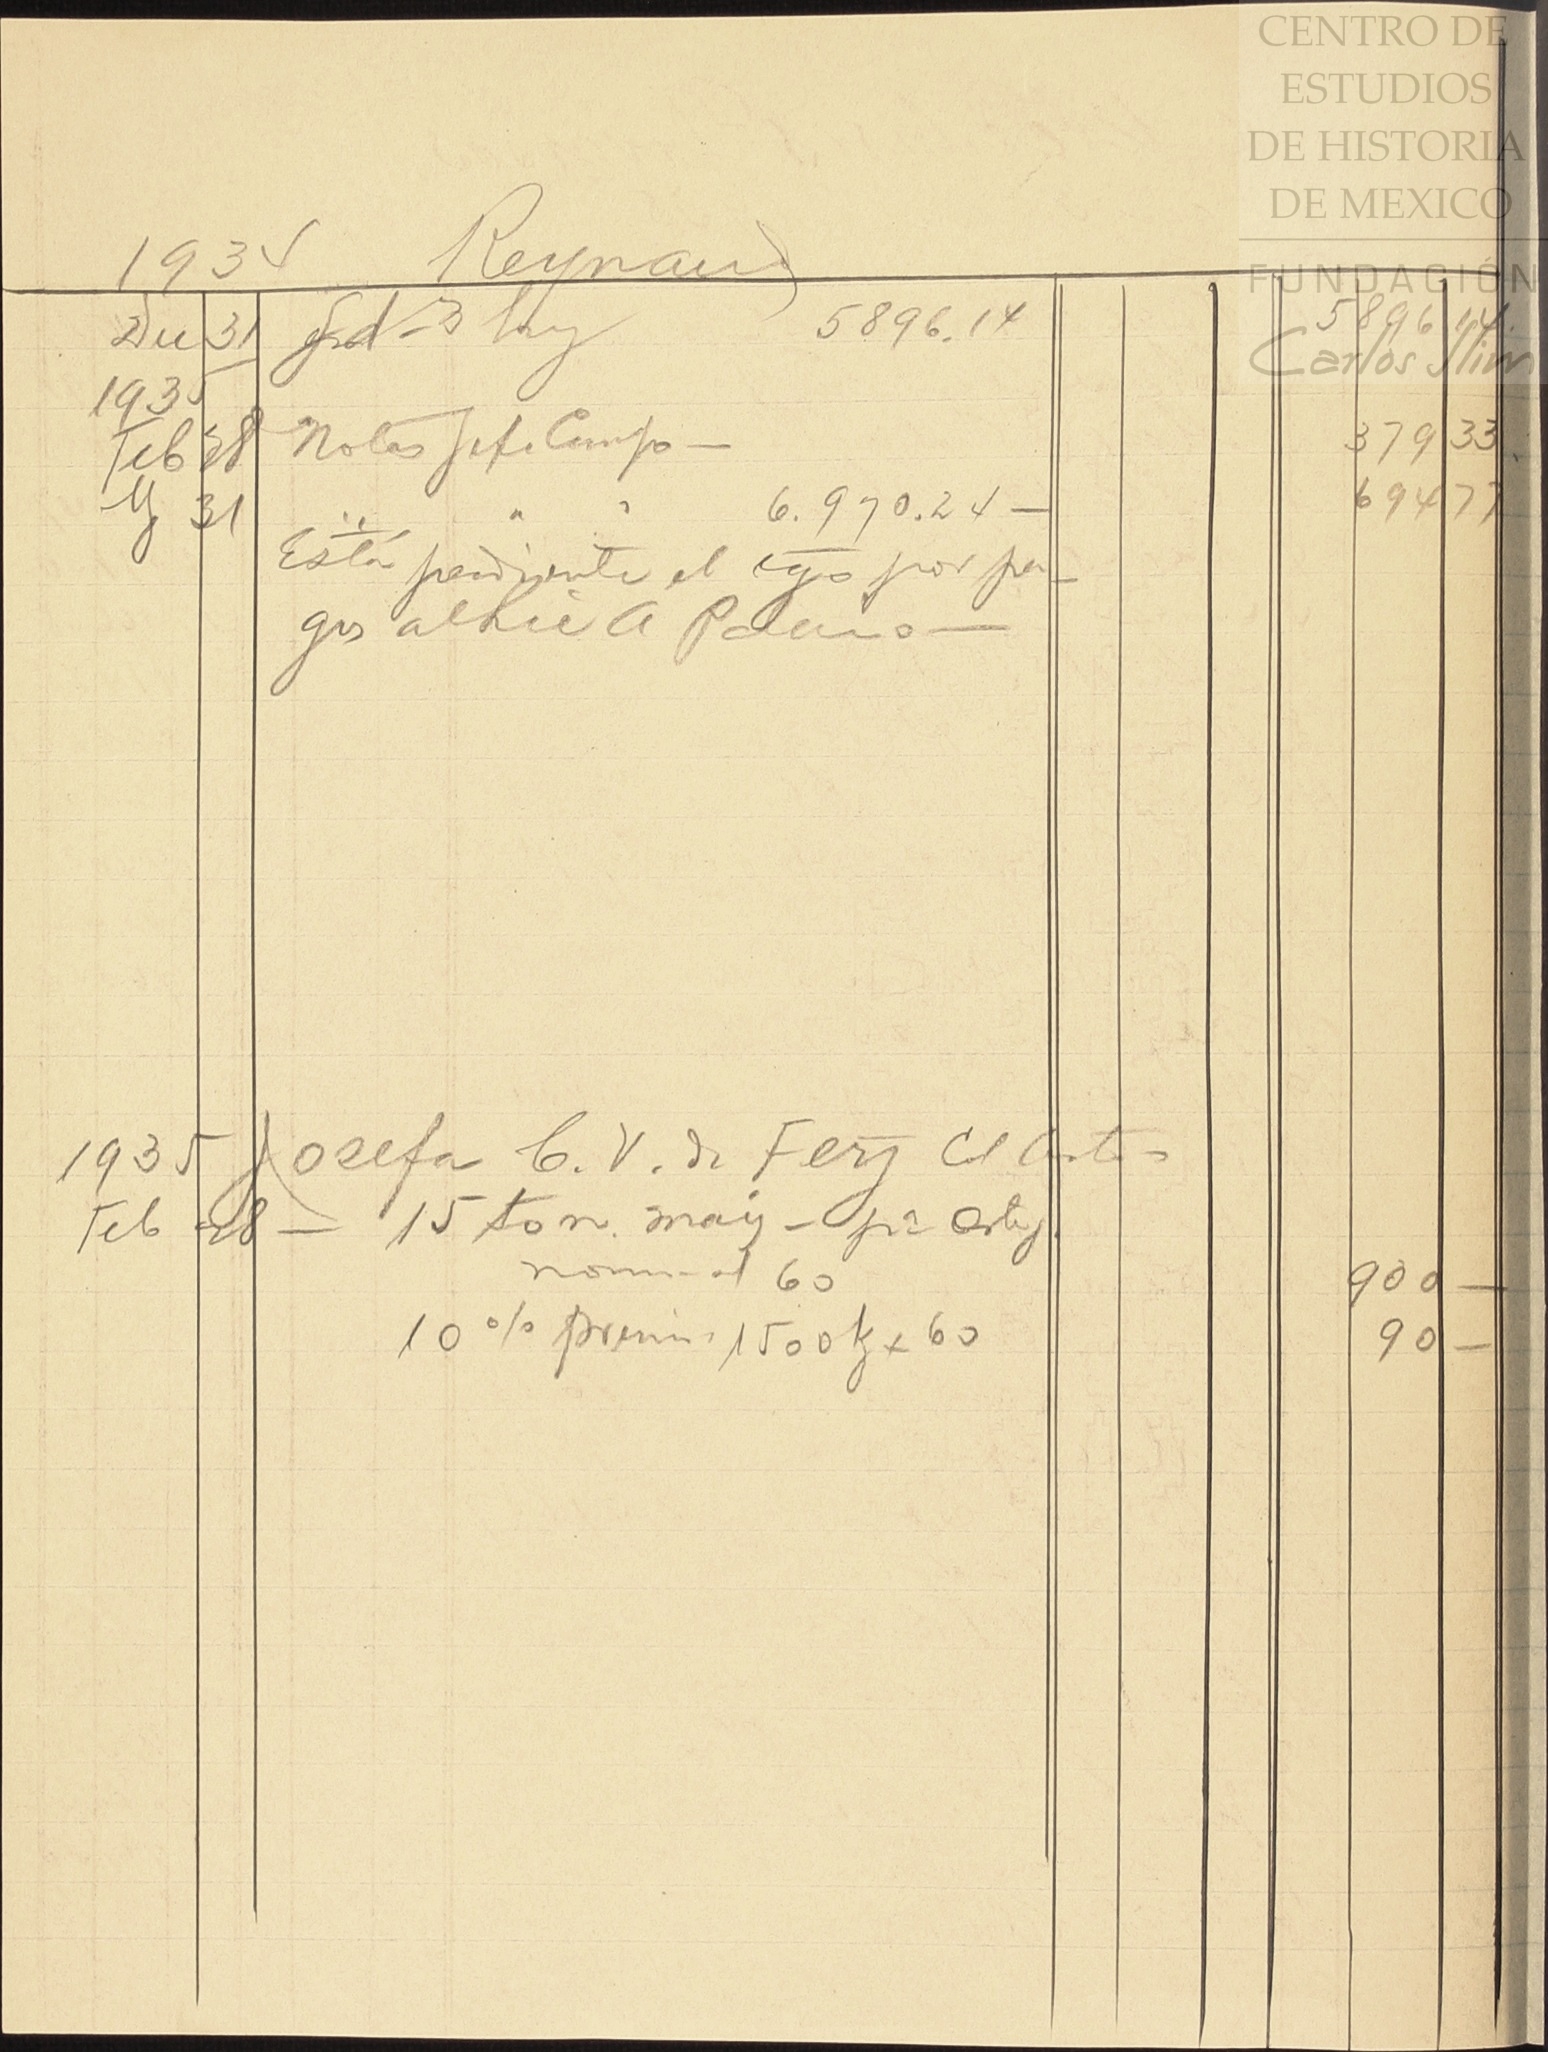 CENTRO DE
ESTUDIOS
DE HISTORIA
DE MEXICO
FUNDACIÓN
Carlos Slim
1934 Reynaud
Dic 31 5896.14 5896 14
1935
Feb 28 Notas Jefe Campo — 379 33
Mz 31 " " " 6.970.24 — 694 77
Está pendiente el cgo por pa-
gos al Lic A —
1935 Josefa C. V. de Ferz
Feb 28 — 15 ton. maiz - pa
nominal 60 900 —
10 % premio 1500 k x 60 90 —